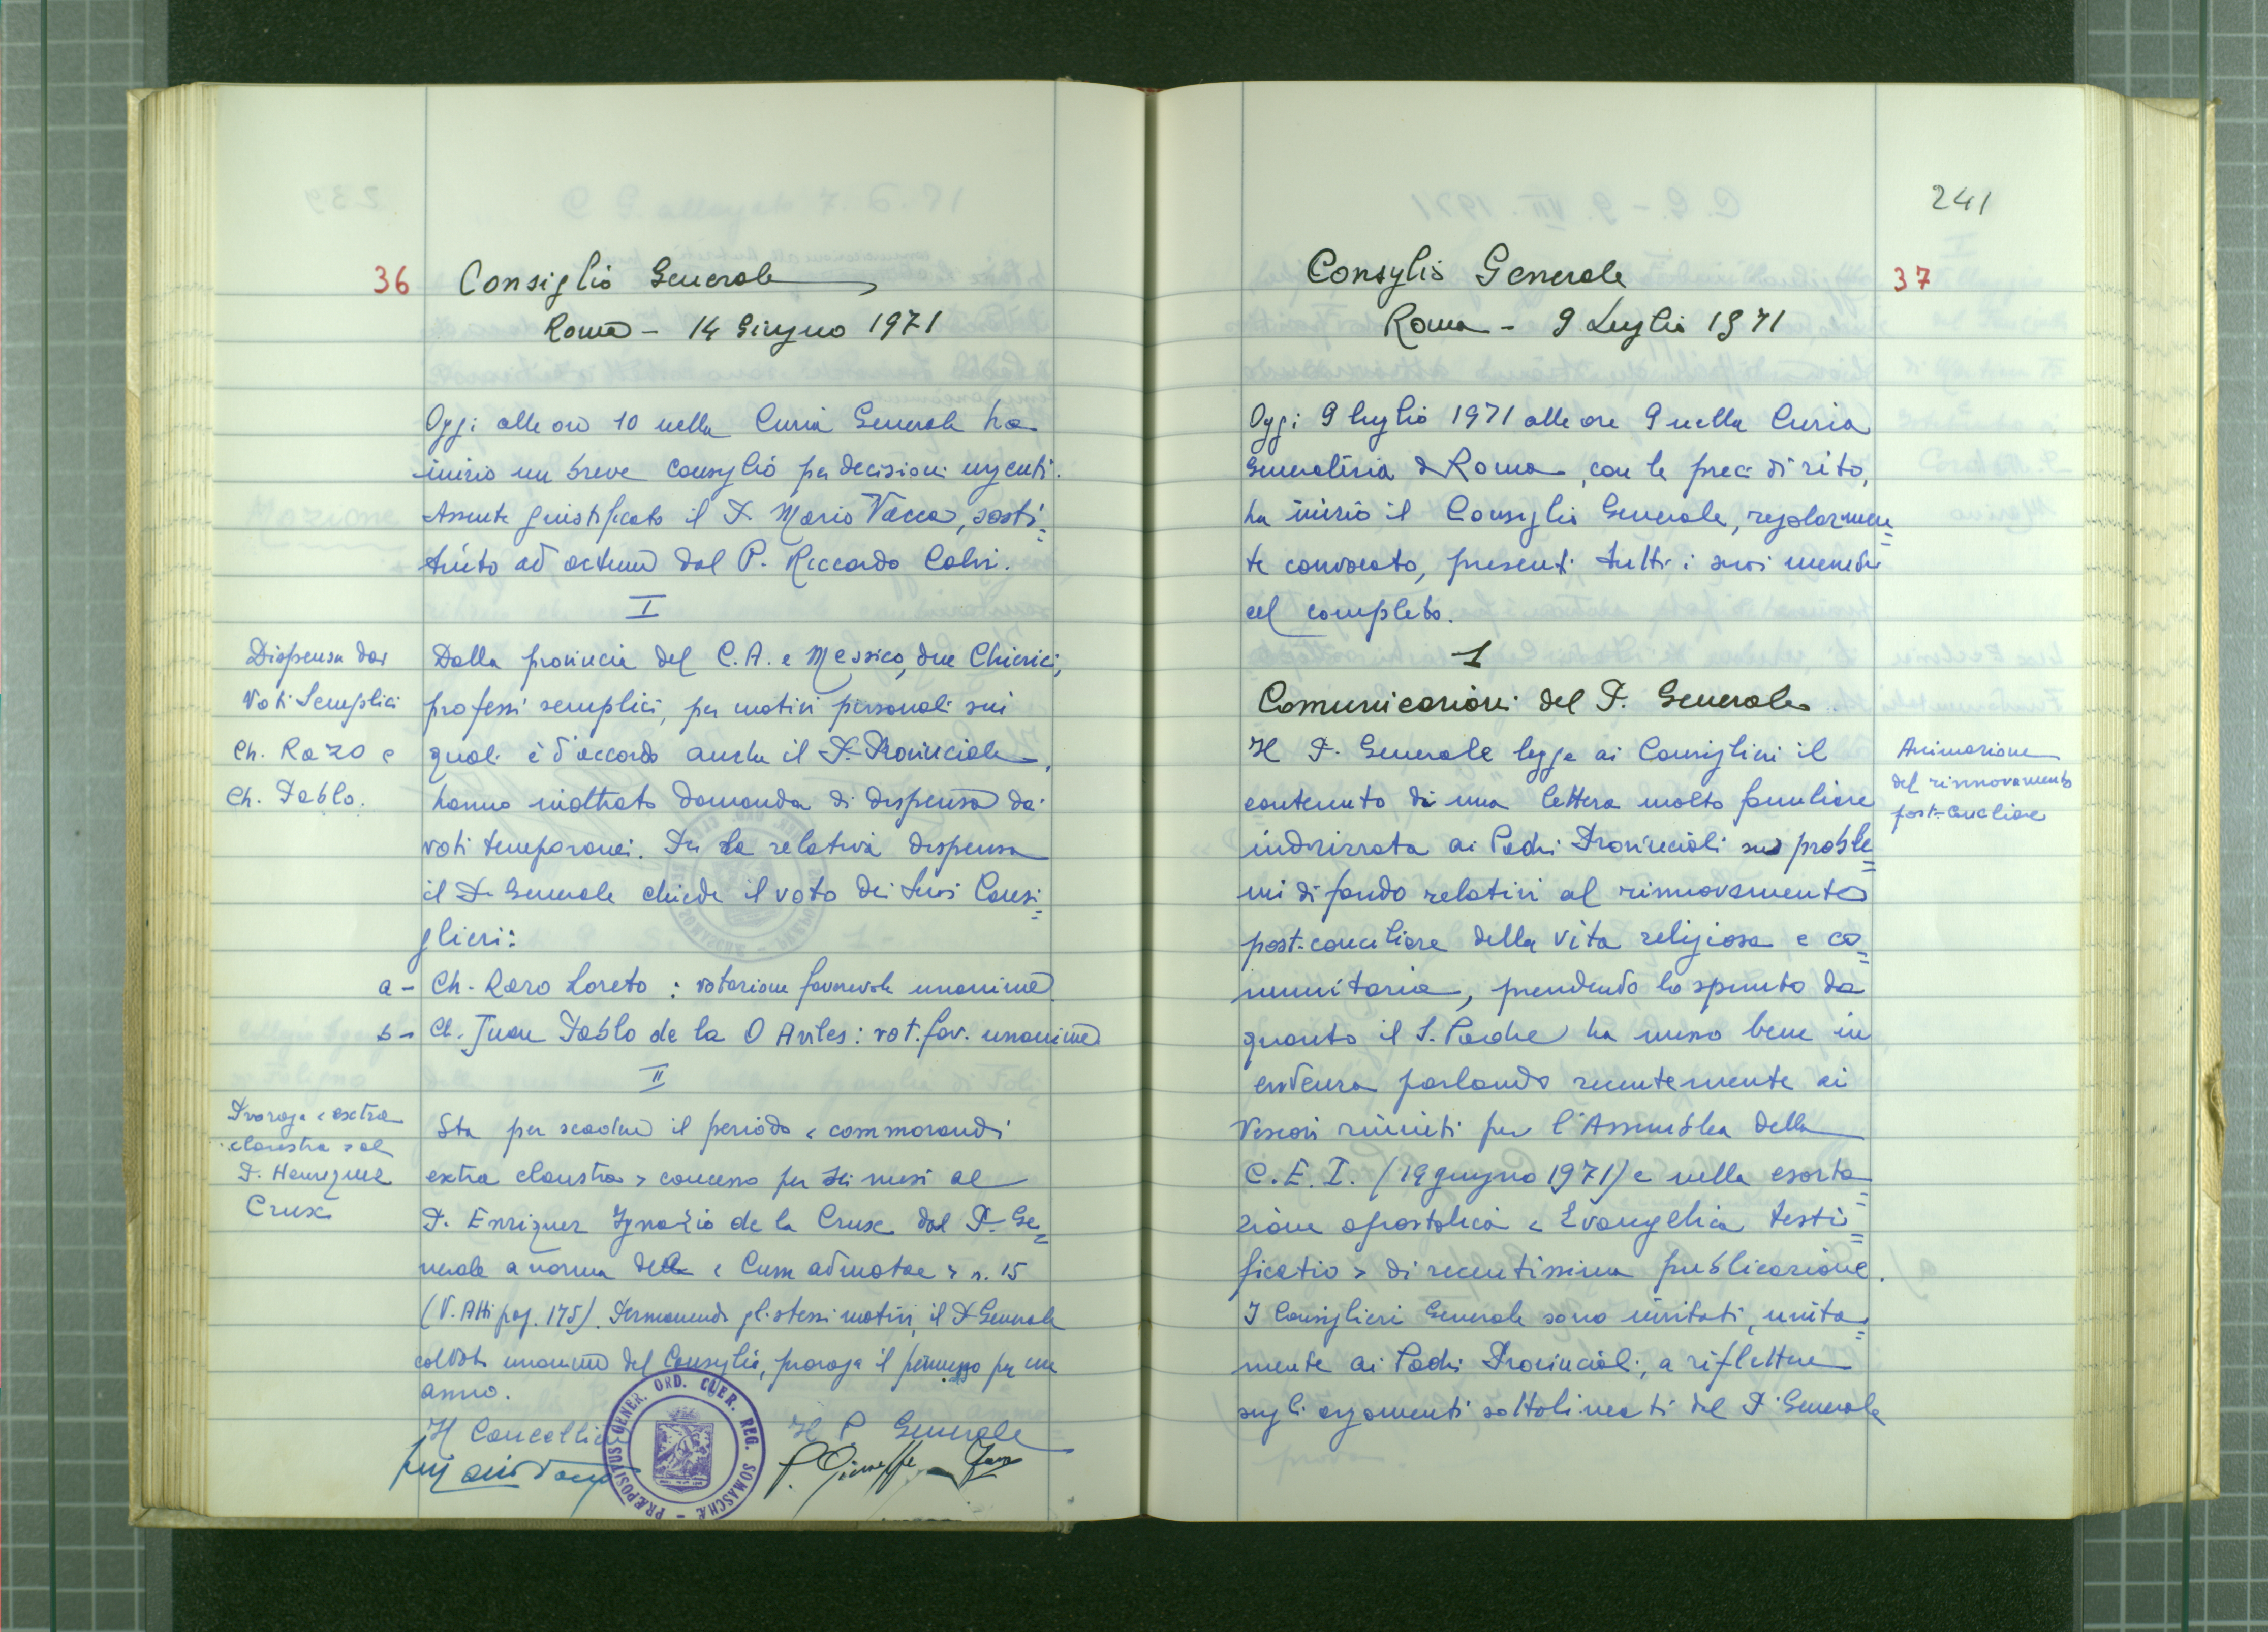 36 Consiglio Generale
Roma - 14 Giugno 1971
Oggi alle ore 10 nella Curia Generale ha
inizio un breve consiglio per decisioni urgenti.
Assente giustificato il P. Mario Vacca, sosti=
tuito ad actum dal P. Riccardo Calvi.
I
Dispensa dai
Voti Semplici
Ch. Razo e
Ch. Pablo.
Dalla provincia del C.A. e Messico, due Chierici,
professi semplici, per motivi personali sui
quali è d'accordo anche il P. Provinciale,
hanno inoltrato domanda di dispensa dai
voti temporanei. Per la relativa dispensa
il P. Generale chiede il voto dei suoi Consi=
glieri:
a - Ch. Razo Loreto : votazione favorevole unanime
b - Ch. Juan Pablo de la O Aviles : vot. fav. unanime.
II
Proroga < extra
claustra > al
P. Henriquez
Crux
Sta per scadere il periodo < commorandi
extra claustra > concesso per sei mesi al
P. Enriquez Ignazio de la Crux dal P. Ge=
nerale a norma della < Cum admotae > n. 15
(V. Atti pag. 175). Permanendo gli stessi motivi, il P. Generale
col voto unanime del Consiglio, proroga il permesso per un
anno.
Il Cancelliere Il P. Generale
PRÆPOSITUS GENER. ORD. CLER. REG. SOMASCHÆ
241
Consiglio Generale 37
Roma - 9 Luglio 1971
Oggi 9 luglio 1971 alle ore 9 nella Curia
Generalizia di Roma, con le preci di rito,
ha inizio il Consiglio Generale, regolarmen=
te convocato, presenti tutti i suoi membri
al completo.
1
Comunicazioni del P. Generale.
Animazione
del rinnovamento
post-conciliare
Il P. Generale legge ai Consiglieri il
contenuto di una lettera molto familiare
indirizzata ai Padri Provinciali sui proble=
mi di fondo relativi al rinnovamento
post-conciliare della vita religiosa e co=
munitaria, prendendo lo spunto da
quanto il S. Padre ha messo bene in
evidenza parlando recentemente ai
Vescovi riuniti per l'Assemblea della
C.E.I. (19 giugno 1971) e nella esorta=
zione apostolica < Evangelica testi=
ficatio > di recentissima pubblicazione.
I Consiglieri Generale sono invitati, unita=
mente ai Padri Provinciali, a riflettere
sugli argomenti sottolineati dal P. Generale